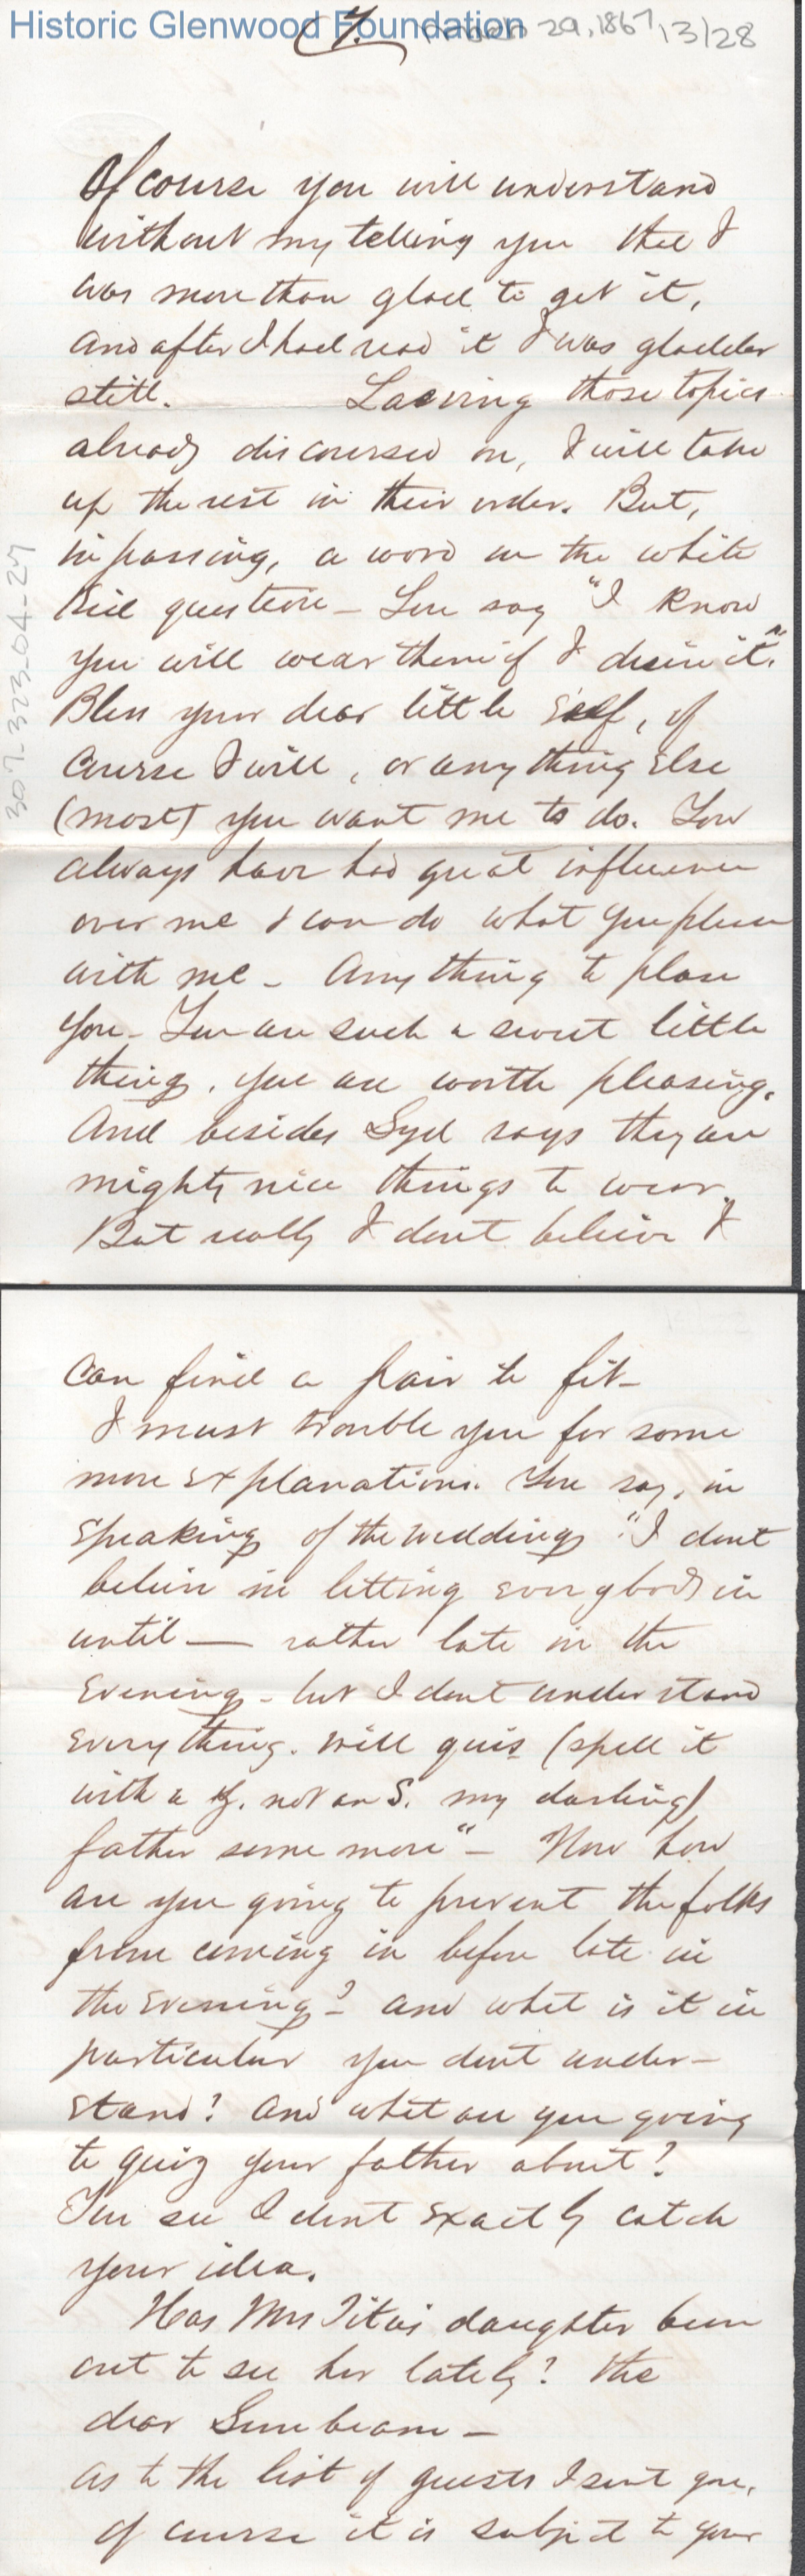 Historic Glenwood Foundation
7.
29, 1867 13/28
Of course you will understand
without my telling you that I
was more than glad to get it,
and after I had read it I was gladder
still. Leaving those topics
already discoursed on, I will take
up the rest in their order. But,
in passing, a word on the white
kid question – You say "I know
you will wear them if I desire it".
Bless your dear little self, of
course I will, or anything else
(most) you want me to do. You
always have had great influence
over me & can do what you please
with me – Anything to please
you – You are such a sweet little
thing, you are worth pleasing.
And besides Syd says they are
mighty nice things to wear.
But really I don't believe I
307-323-04-27
can find a pair to fit –
I must trouble you for some
more explanations. You say, in
speaking of the wedding "I dont
believe in letting everybody in
until — rather late in the
evening – but I dont understand
everything. Will quis (spell it
with a z. not an S. my darling)
father some more" – Now how
are you going to prevent the folks
from coming in before late in
the evening? – and what is it in
particular you dont under–
stand? And what are you going
to quiz your father about?
You see I dont exactly catch
your idea.
Has Mrs Titus daughter been
out to see her lately? The
dear Sunbeam –
As to the list of guests I sent you,
of course it is subject to your